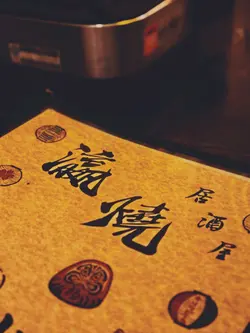 瀛燒
居酒屋